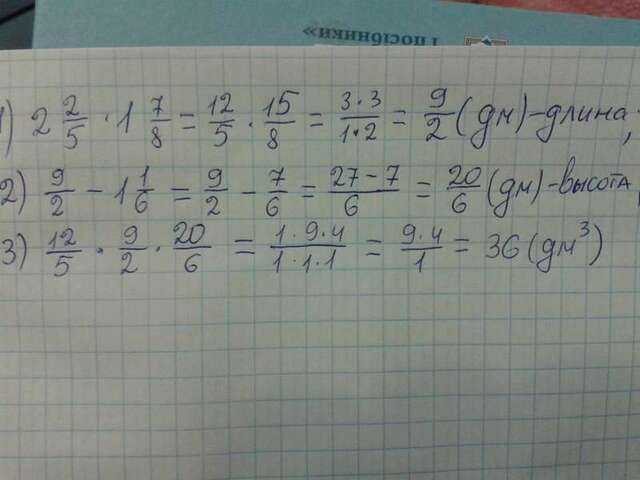 І посібники»
1) 2 2/5 · 1 7/8 = 12/5 · 15/8 = 3·3/1·2 = 9/2 (дм) - длина;
2) 9/2 - 1 1/6 = 9/2 - 7/6 = 27-7/6 = 20/6 (дм) - высота,
3) 12/5 · 9/2 · 20/6 = 1·9·4/1·1·1 = 9·4/1 = 36 (дм³)